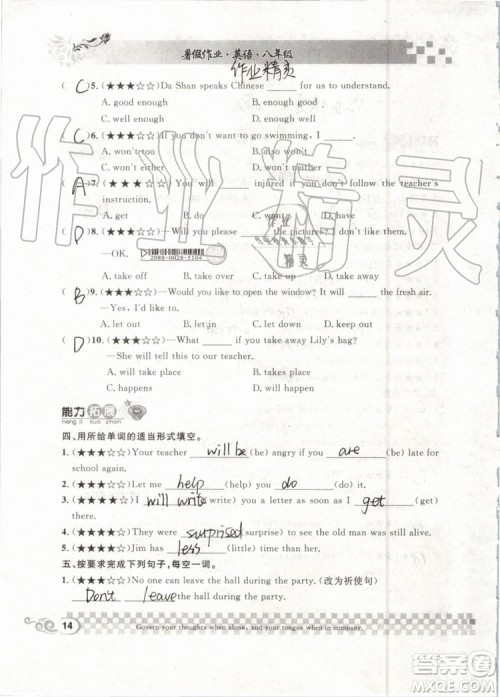 暑假作业·英语·八年级
作业精灵
( C )5. (★★★☆☆) Da Shan speaks Chinese ______ for us to understand.
A. good enough B. enough good
C. well enough D. enough well
( C )6. (★★★☆☆) If you don't want to go swimming, I ______.
A. won't too B. also won't
C. won't either D. won't neither
( A )7. (★★★☆☆) You will ______ injured if you don't follow the teacher's
instruction.
A. get B. go C. want D. have
( D )8. (★★★☆☆)—Will you please ______ the pictures? I don't like them.
—OK.
A. take off B. take over C. take out D. take down
( B )9. (★★★☆☆)—Would you like to open the window? It will ______ the fresh air.
—Yes, I'd like to.
A. let out B. let in C. let down D. let
( D )10. (★★★☆☆)—What ______ if you take away Lily's bag?
—She will tell this to our teacher.
A. will take place B. take place
C. happens D. will happen
能力拓展
neng li tuo zhan
四、用所给单词的适当形式填空。
1. (★★★☆☆) Your teacher will be (be) angry if you are (be) late for
school again.
2. (★★★☆☆) Let me help (help) you do (do) it.
3. (★★★☆☆) I will write (write) you a letter as soon as I get (get)
there.
4. (★★★☆☆) They were surprised (surprise) to see the old man was still alive.
5. (★★★☆☆) Jim has less (little) time than her.
五、按要求完成下列句子,每空一词。
1. (★★★☆☆) No one can leave the hall during the party. (改为祈使句)
Don't leave the hall during the party.
14
Govern your thoughts when alone, and your tongue when in company.
作业精灵
答案圈
MXQE.COM